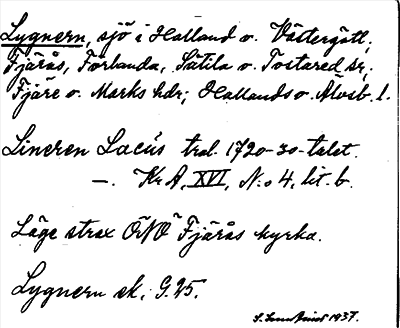 Lygnern, sjö i Halland o. Västergötl;
Fjärås, Förlanda, Sätila o. Tostared sr;
Fjäre o. Marks hdr; Hallands o. Älvsb. l.
Lineren Lacus tral. 1720-30-talet.
—. Kr A, XVI, N:o 4, lit. b.
Läge strax ÖNÖ Fjärås kyrka.
Lygnern sk. G. 45.
1937.